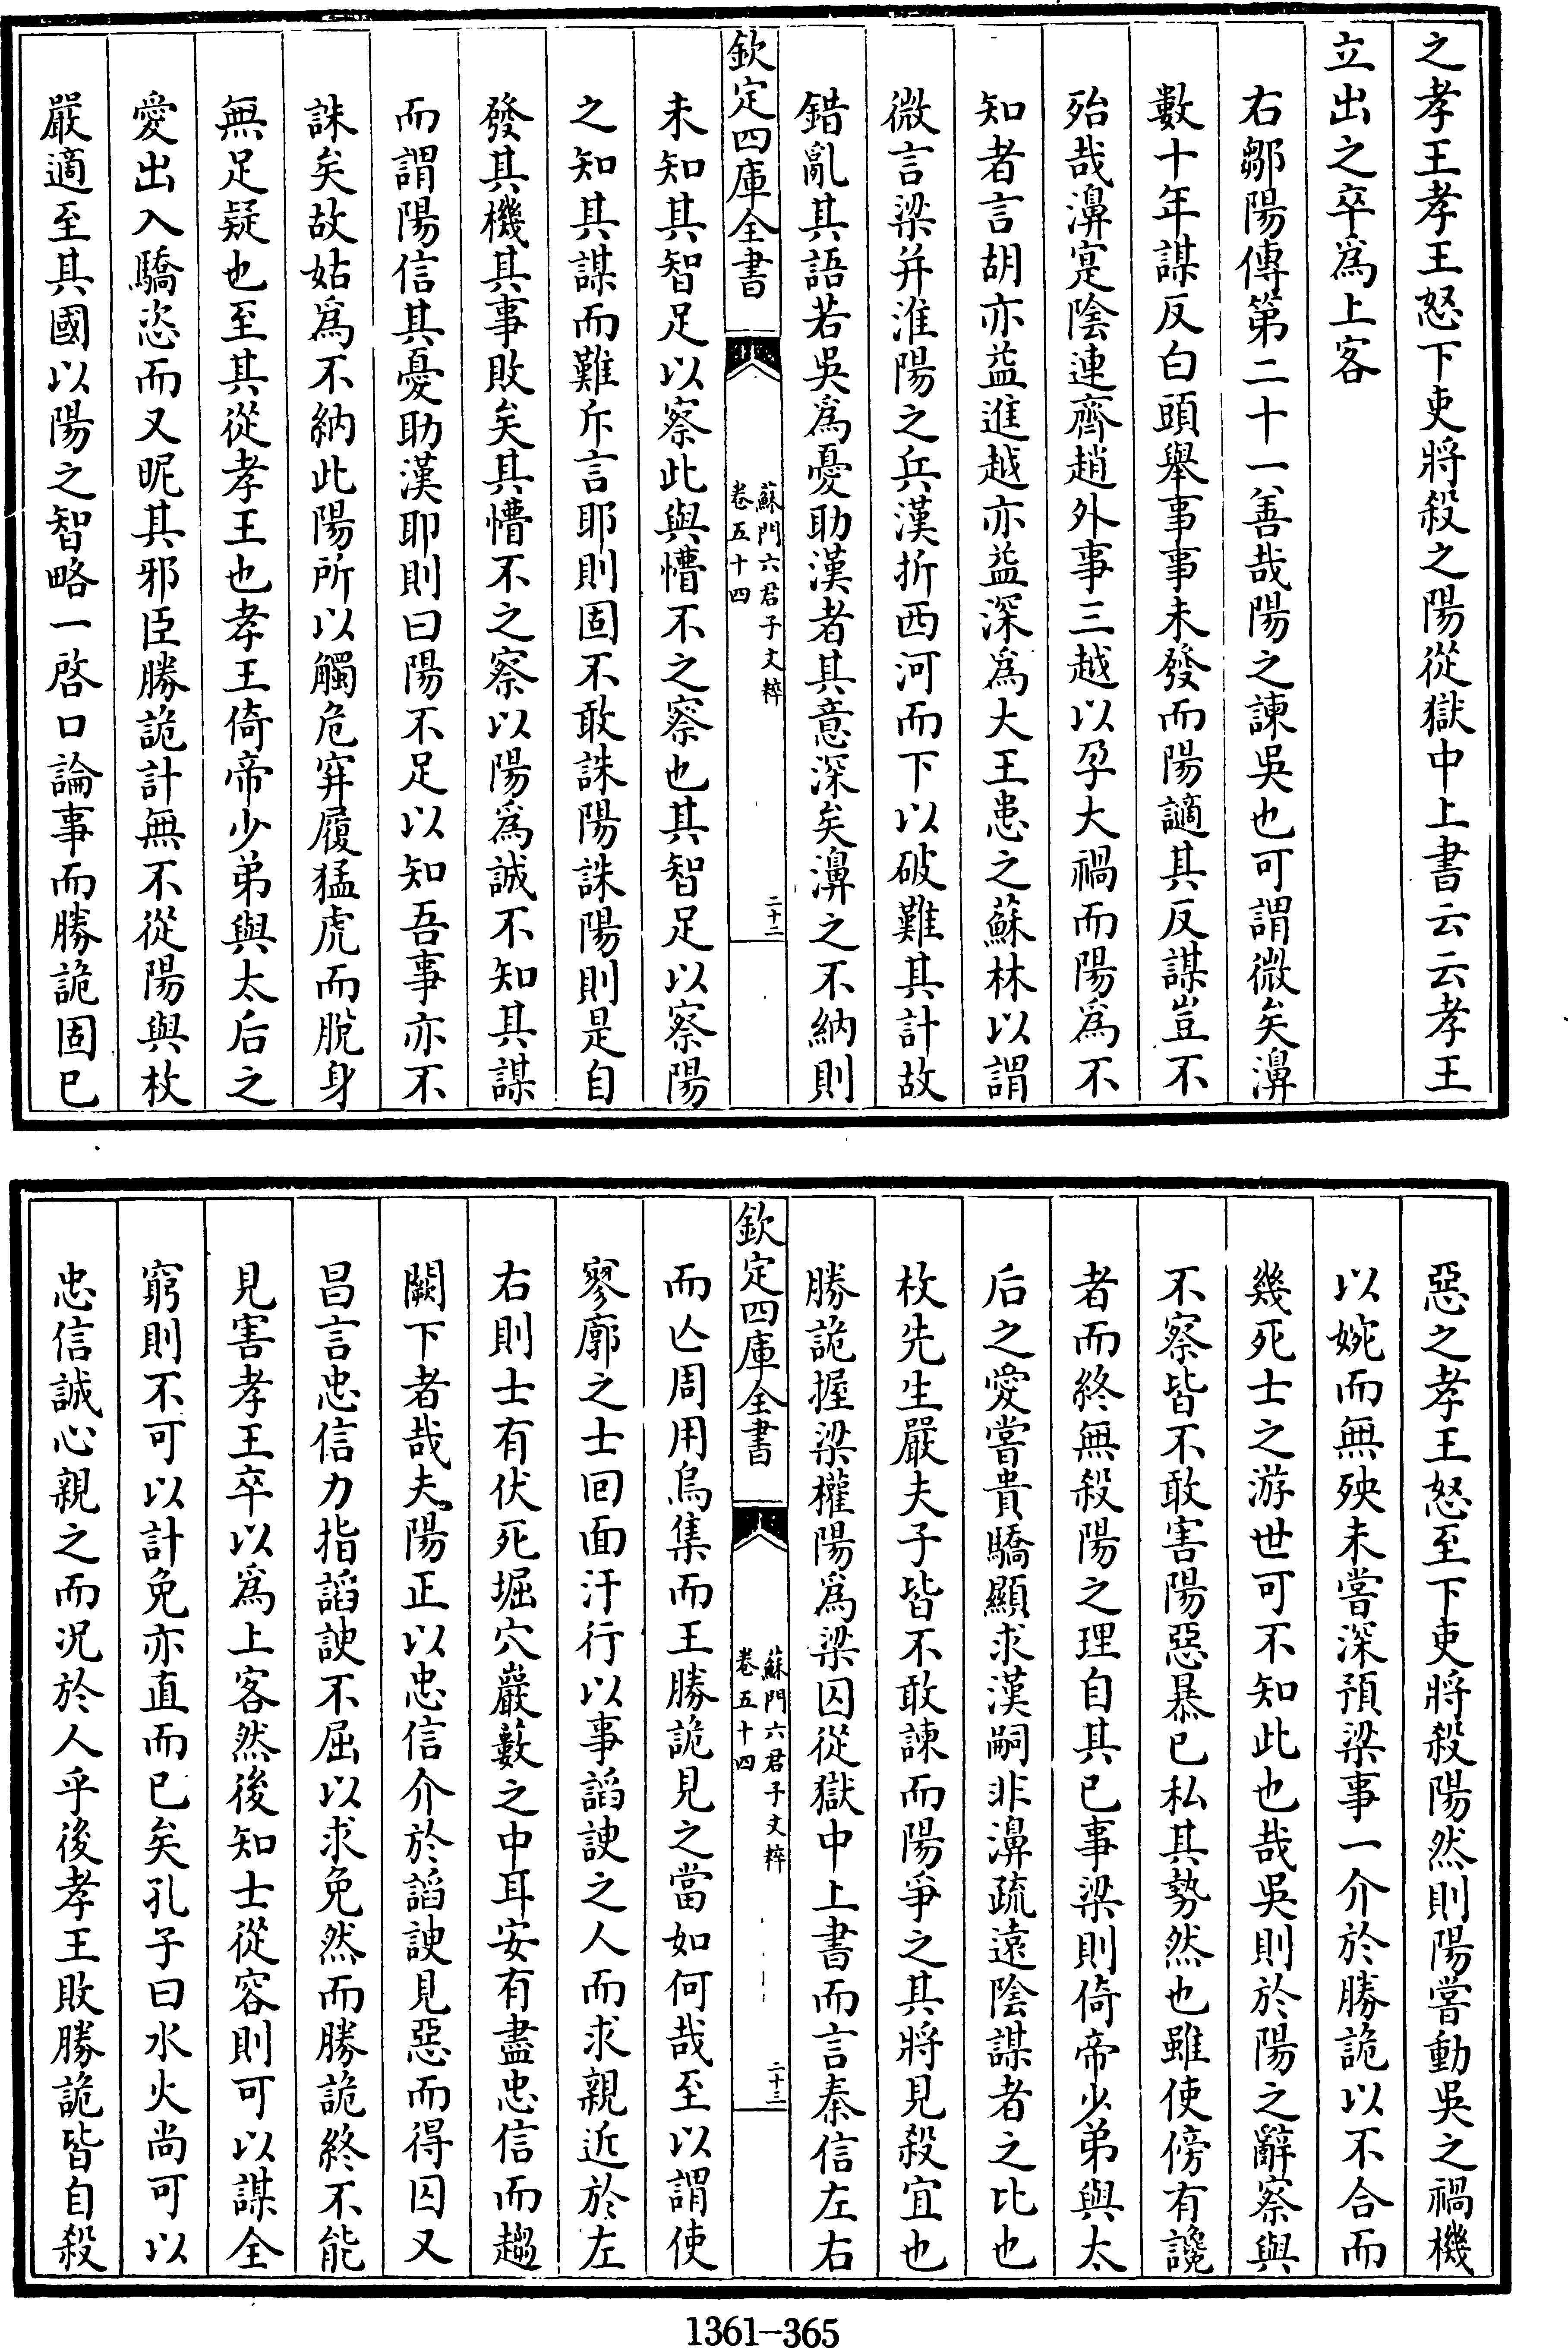 之孝王孝王怒下吏將殺之陽從獄中上書云云孝王
立出之卒爲上客
右鄒陽傳第二十一善哉陽之諫吳也可謂微矣濞
數十年謀反白頭舉事事未發而陽讁其反謀豈不
殆哉濞寔陰連齊趙外事三越以孕大禍而陽爲不
知者言胡亦益進越亦益深爲大王患之蘇林以謂
微言梁并淮陽之兵漢折西河而下以破難其計故
錯亂其語若吳爲憂助漢者其意深矣濞之不納則
欽定四庫全書
蘇門六君子文粹
卷五十四
二十二
未知其智足以察此與懵不之察也其智足以察陽
之知其謀而難斥言耶則固不敢誅陽誅陽則是自
發其機其事敗矣其懵不之察以陽爲誠不知其謀
而謂陽信其憂助漢耶則曰陽不足以知吾事亦不
誅矣故姑爲不納此陽所以觸危穽履猛虎而脫身
無足疑也至其從孝王也孝王倚帝少弟與太后之
愛出入驕恣而又昵其邪臣勝詭計無不從陽與枚
嚴適至其國以陽之智略一啓口論事而勝詭固已
惡之孝王怒至下吏將殺陽然則陽嘗動吳之禍機
以婉而無殃未嘗深預梁事一介於勝詭以不合而
幾死士之游世可不知此也哉吳則於陽之辭察與
不察皆不敢害陽惡暴已私其勢然也雖使傍有讒
者而終無殺陽之理自其已事梁則倚帝少弟與太
后之愛嘗貴驕顯求漢嗣非濞疏遠陰謀者之比也
枚先生嚴夫子皆不敢諫而陽爭之其將見殺宜也
勝詭握梁權陽爲梁囚從獄中上書而言秦信左右
欽定四庫全書
蘇門六君子文粹
卷五十四
二十三
而亾周用烏集而王勝詭見之當如何哉至以謂使
寥廓之士回面汙行以事謟諛之人而求親近於左
右則士有伏死堀穴巖藪之中耳安有盡忠信而趨
闕下者哉夫陽正以忠信介於謟諛見惡而得囚又
昌言忠信力指謟諛不屈以求免然而勝詭終不能
見害孝王卒以爲上客然後知士從容則可以謀全
窮則不可以計免亦直而已矣孔子曰水火尚可以
忠信誠心親之而況於人乎後孝王敗勝詭皆自殺
1361-365